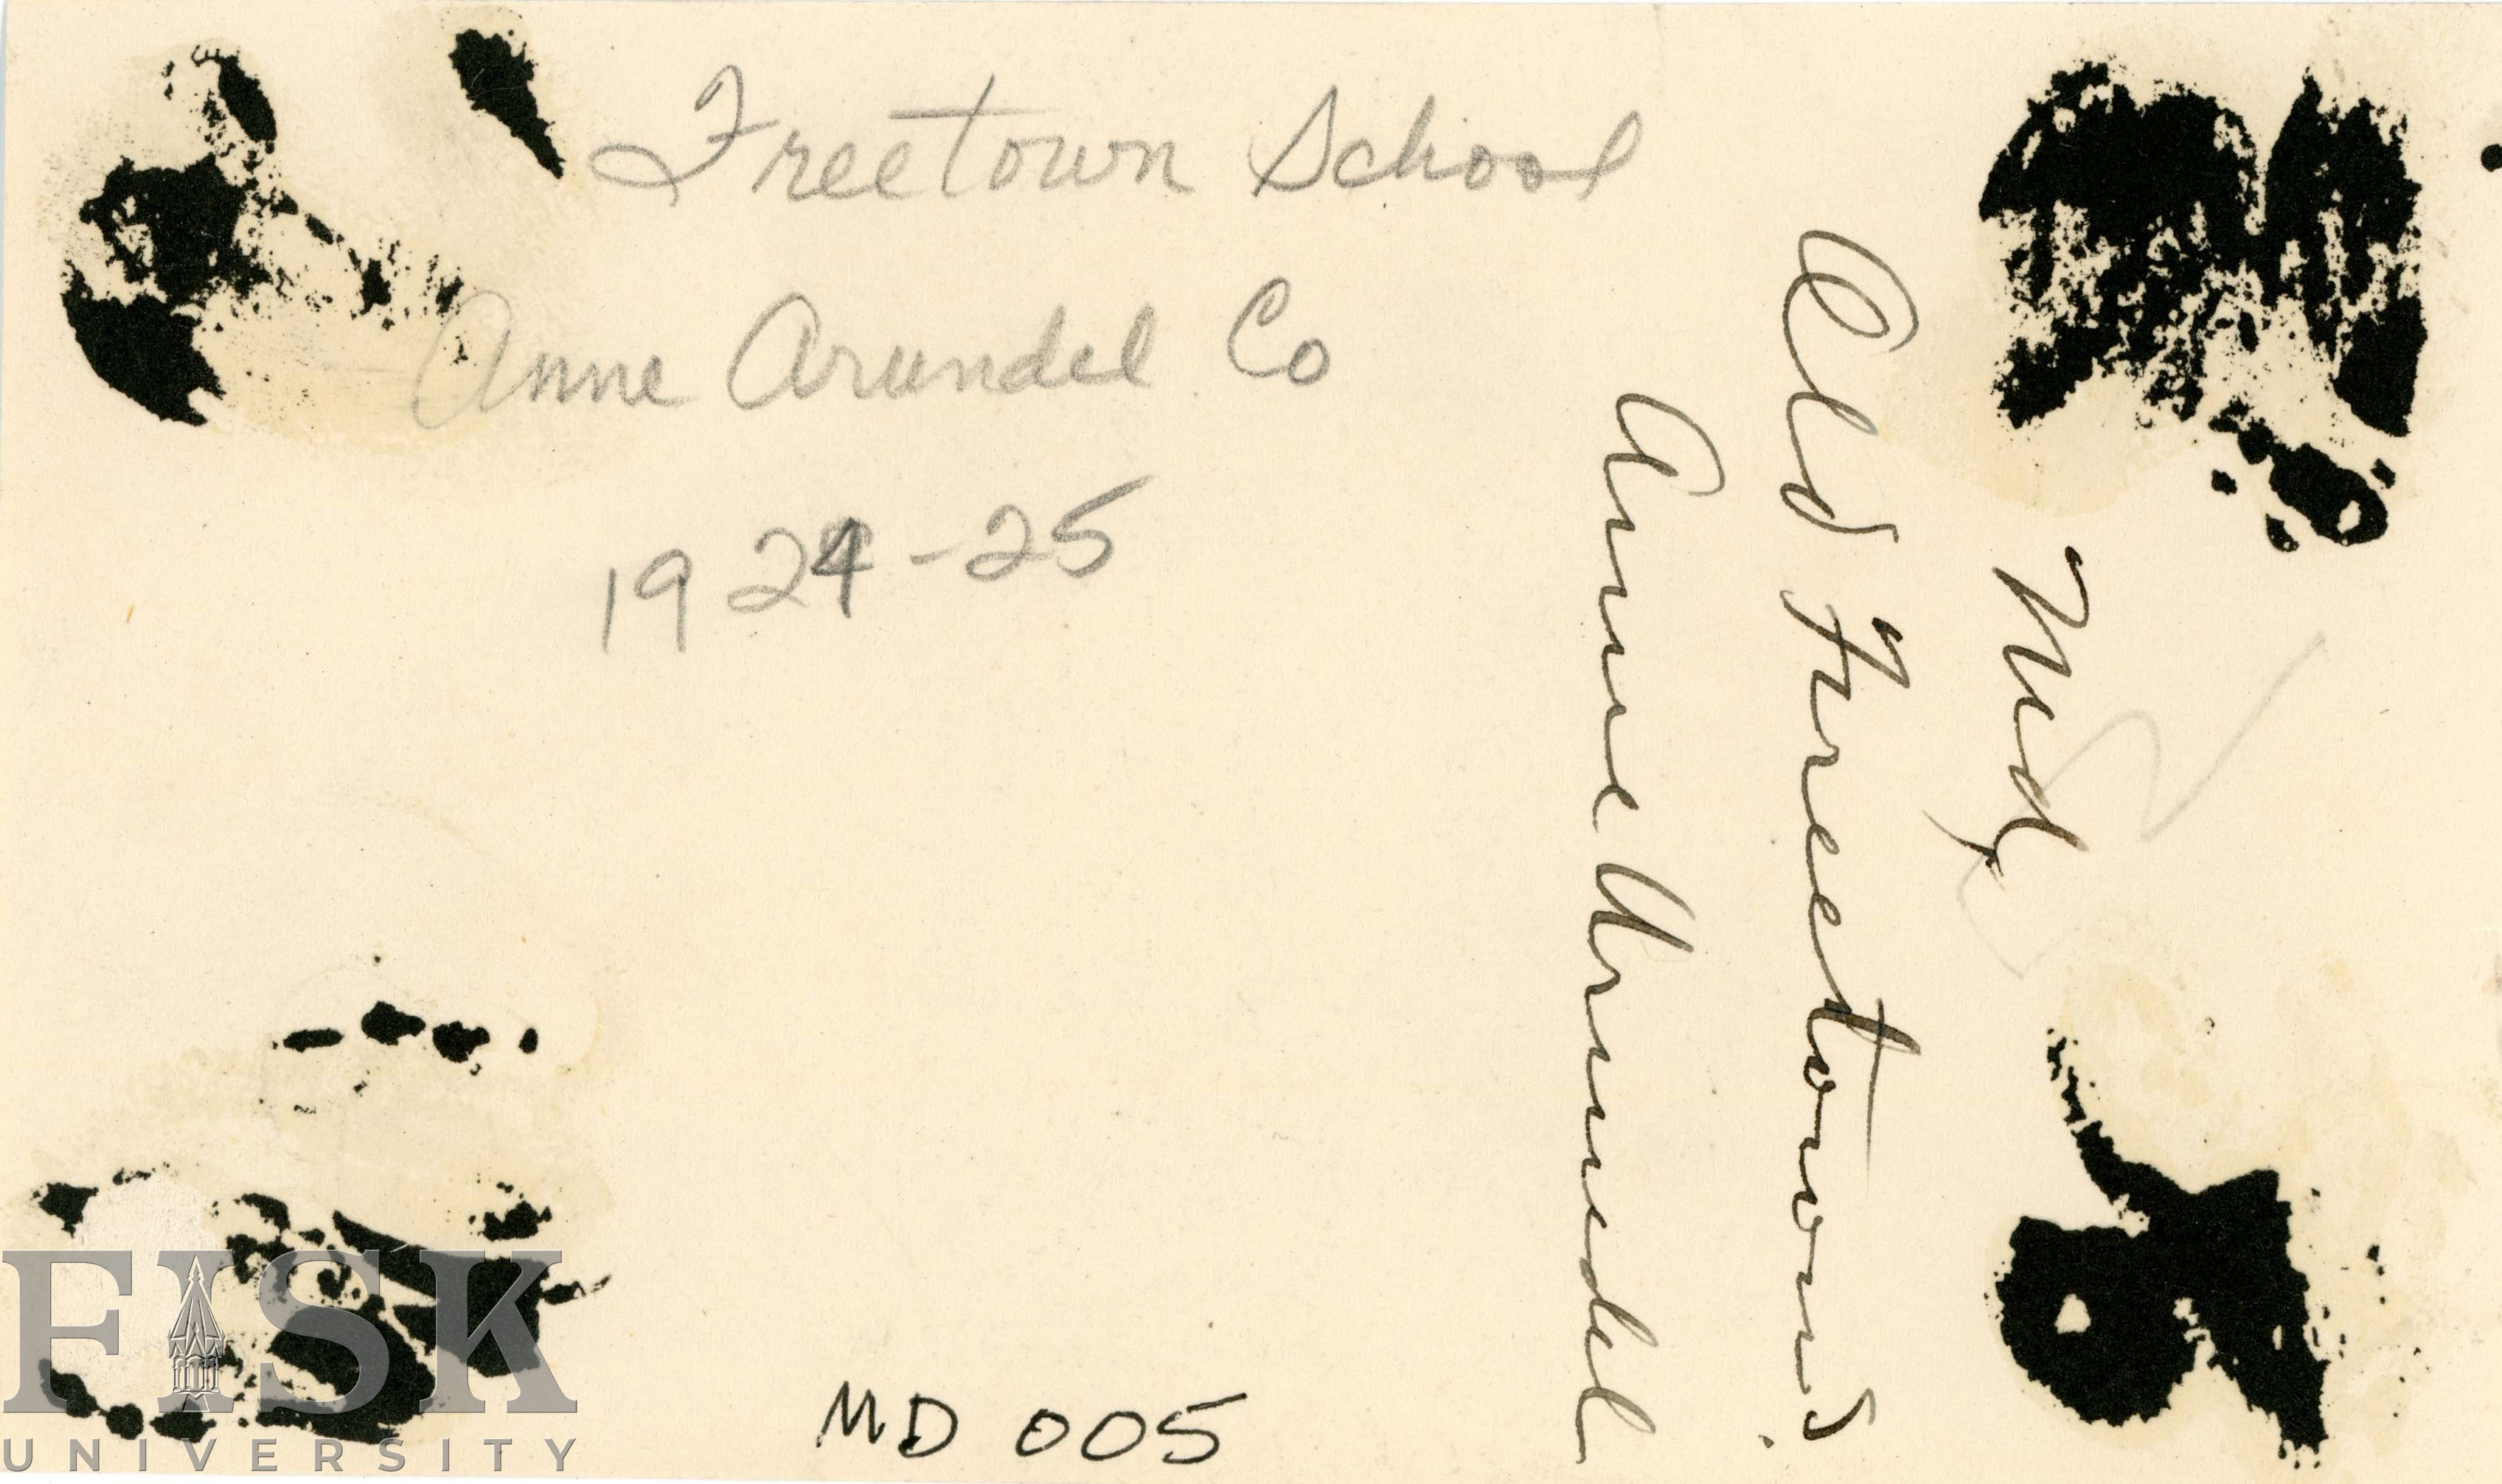 Freetown School
Anne Arundel Co
1924-25
Md
Old Freetown.
Anne Arundel
MD 005
FISK
UNIVERSITY